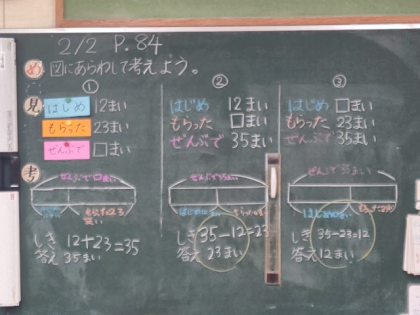 2/2 P.84
め 図にあらわして考えよう。
①
見 はじめ 12まい
もらった 23まい
ぜんぶで □まい
考 ぜんぶで□まい
しき 12+23=35
答え 35まい
②
はじめ 12まい
もらった □まい
ぜんぶで 35まい
ぜんぶで35まい
しき 35-12=23
答え 23まい
③
はじめ □まい
もらった 23まい
ぜんぶで 35まい
ぜんぶで 35まい
しき 35-23=12
答え 12まい